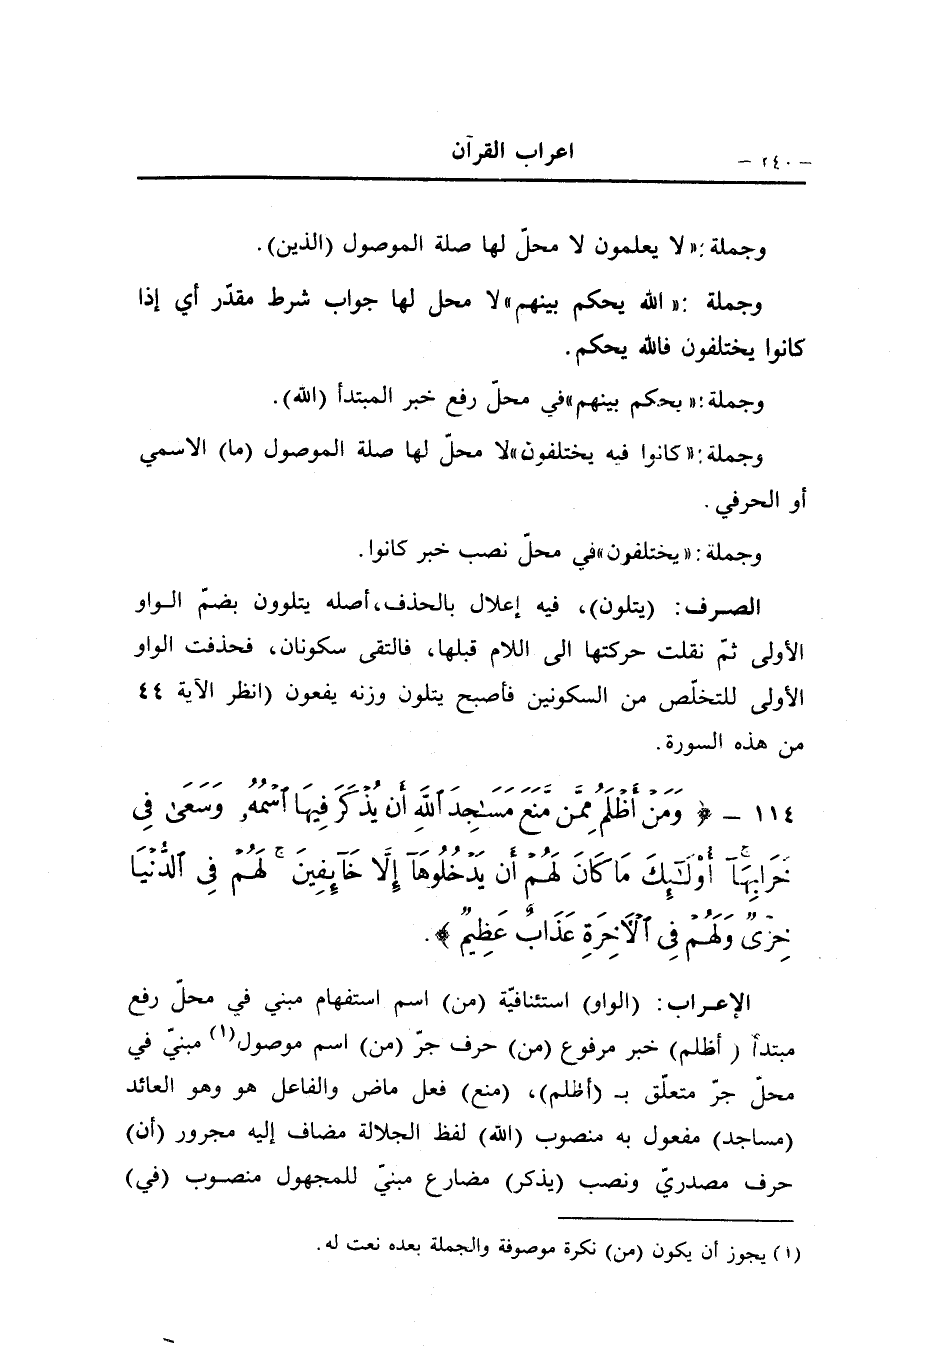 – ٢٤٠ –
اعراب القرآن
وجملة :«لا يعلمون لا محلّ لها صلة الموصول (الذين).
وجملة :« الله يحكم بينهم»لا محل لها جواب شرط مقدّر أي إذا
كانوا يختلفون فالله يحكم.
وجملة :«يحكم بينهم»في محلّ رفع خبر المبتدأ (الله).
وجملة :«كانوا فيه يختلفون»لا محلّ لها صلة الموصول (ما) الاسمي
أو الحرفي.
وجملة :«يختلفون»في محلّ نصب خبر كانوا.
الصرف: (يتلون)، فيه إعلال بالحذف،أصله يتلوون بضمّ الواو
الأولى ثمّ نقلت حركتها الى اللام قبلها، فالتقى سكونان، فحذفت الواو
الأولى للتخلّص من السكونين فأصبح يتلون وزنه يفعون (انظر الآية ٤٤
من هذه السورة.
١١٤ – ﴿ وَمَنْ أَظْلَمُ مِمَّن مَّنَعَ مَسَـٰجِدَ ٱللَّهِ أَن يُذْكَرَ فِيهَا ٱسْمُهُۥ وَسَعَىٰ فِى
خَرَابِهَآ ۚ أُوْلَـٰٓئِكَ مَا كَانَ لَهُمْ أَن يَدْخُلُوهَآ إِلَّا خَآئِفِينَ ۚ لَهُمْ فِى ٱلدُّنْيَا
خِزْىٌ وَلَهُمْ فِى ٱلْأَخِرَةِ عَذَابٌ عَظِيمٌ ﴾.
الإعراب: (الواو) استئنافيّة (من) اسم استفهام مبني في محلّ رفع
مبتدأ ( أظلم) خبر مرفوع (من) حرف جرّ (من) اسم موصول(١) مبنيّ في
محلّ جرّ متعلّق بـ (أظلم)، (منع) فعل ماض والفاعل هو وهو العائد
(مساجد) مفعول به منصوب (الله) لفظ الجلالة مضاف إليه مجرور (أن)
حرف مصدريّ ونصب (يذكر) مضارع مبنيّ للمجهول منصوب (في)
(١) يجوز أن يكون (من) نكرة موصوفة والجملة بعده نعت له.